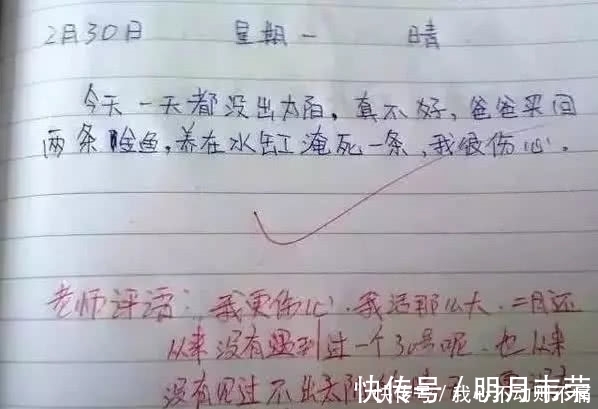 2月30日 星期一 晴
今天一天都没出太阳，真不好，爸爸买回
两条金鱼，养在水缸淹死一条，我很伤心。
老师评语：我更伤心，我活那么大，二月还
从来没有遇到过一个30号呢，也从来
没有见过不出太阳
快传号/明月
号/我心不动则不痛